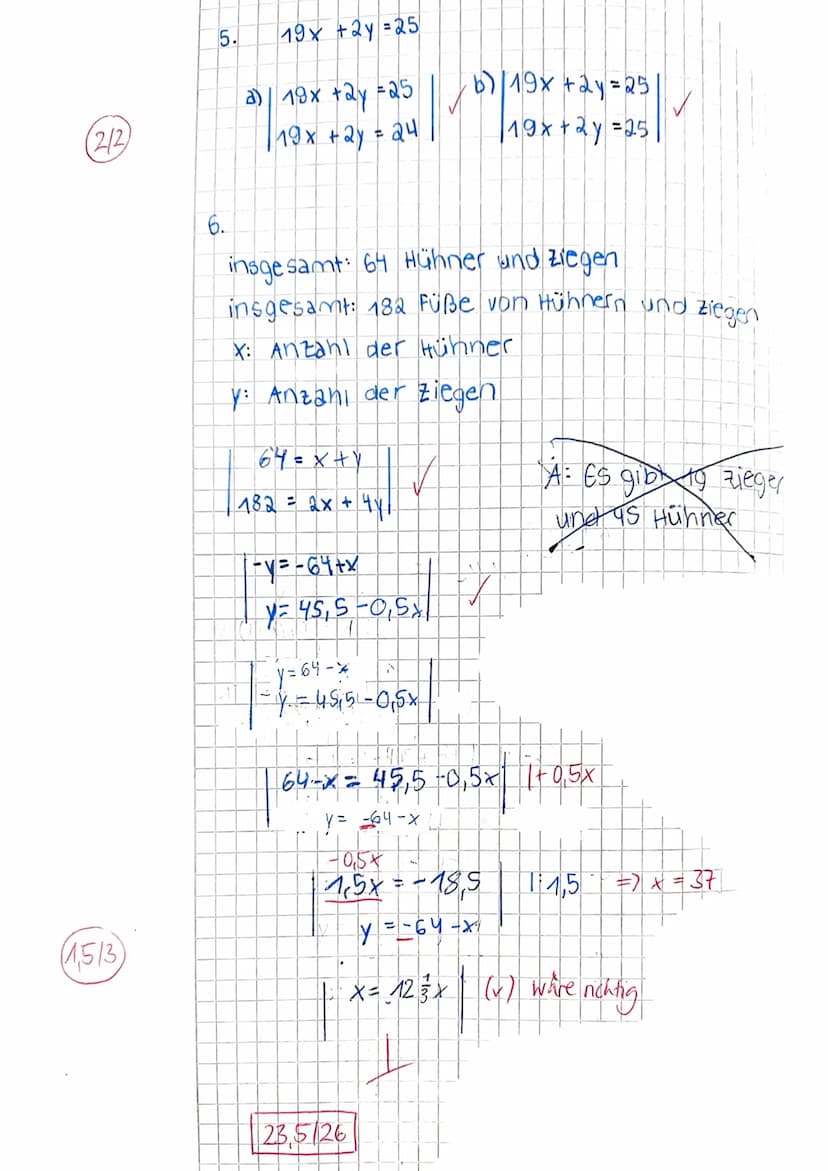 5. 19x + 2y = 25
a) | 19x + 2y = 25 | ✓ b) | 19x + 2y = 25 | ✓
| 19x + 2y = 24 | | 19x + 2y = 25 |
2/2
6.
insgesamt: 64 Hühner und Ziegen
insgesamt: 182 Füße von Hühnern und Ziegen
x: Anzahl der Hühner
y: Anzahl der Ziegen
| 64 = x + y | ✓
| 182 = 2x + 4y |
A: Es gibt 19 Ziegen
und 45 Hühner
| -y = -64 + x | ✓
| y = 45,5 - 0,5x |
| y = 64 - x |
| y = 45,5 - 0,5x |
| 64 - x = 45,5 - 0,5x | | + 0,5x
y = -64 - x
-0,5x
| 1,5x = -18,5 | | : 1,5 => x = 37
y = -64 - x
1,5/3
| x = 12 1/3 x | (v) wäre richtig
23,5/26